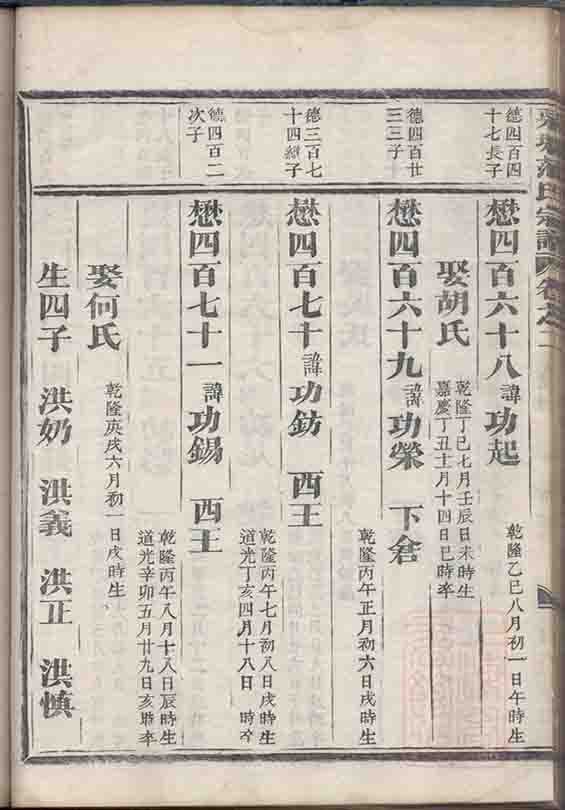 氏宗譜
德四百四
十七長子
懋四百六十八諱功起
乾隆乙巳八月初一日午時生
娶胡氏
乾隆丁巳七月壬辰日未時生
嘉慶丁丑十一月十四日巳時卒
德四百廿
三三子
懋四百六十九諱功榮 下倉
乾隆丙午正月初六日戌時生
德三百七
十四繼子
懋四百七十諱功鈁 西王
乾隆丙午七月初八日戌時生
道光丁亥四月十八日 時卒
德四百二
次子
懋四百七十一諱功錫 西王
乾隆丙午八月十八日辰時生
道光辛卯五月廿九日亥時卒
娶何氏
乾隆庚戌六月初一日戌時生
生四子 洪奶 洪義 洪正 洪慎